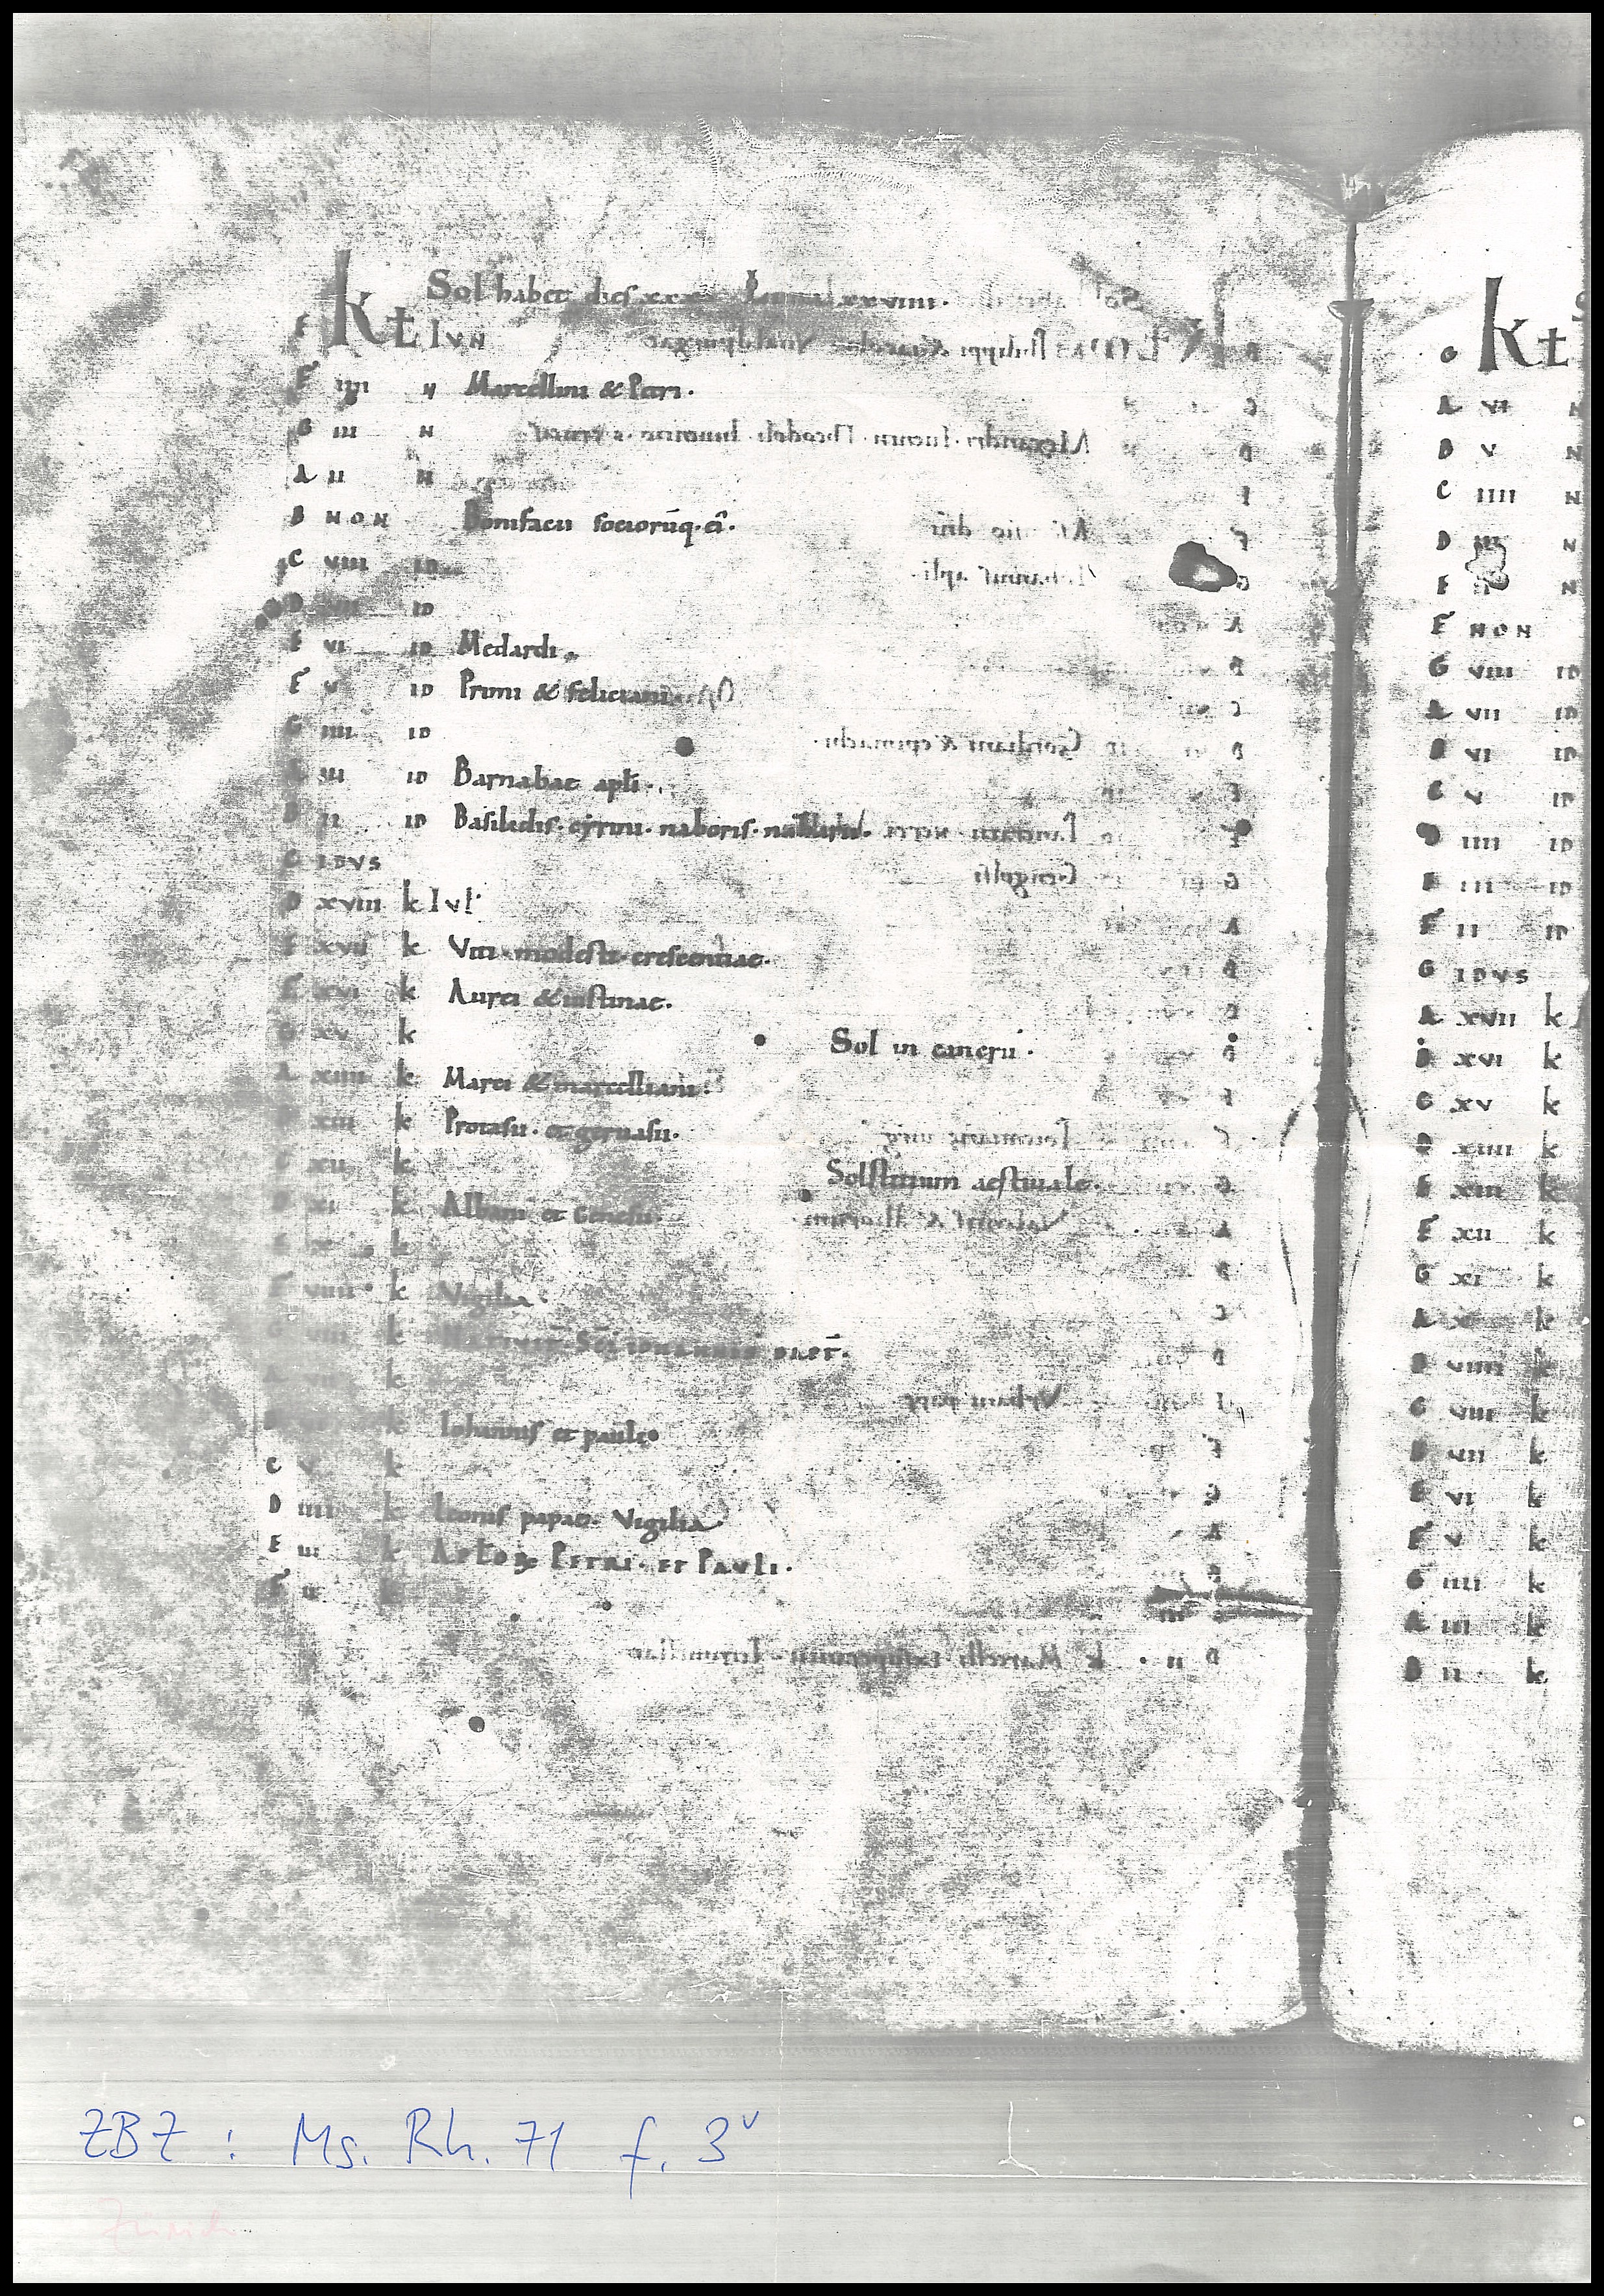 Sol habet dies xxx. Luna xxviiii.
E kł Iun
F iiii N Marcellini & Petri.
G iii N
A ii N
B NON Bonifacii sociorūq. ei.
C viii ID
D vii ID
E vi ID Medardi.
F v ID Primi & feliciani
G iiii ID
A iii ID Barnabae apłi.
B ii ID Basiledis. cyrini. naboris. nazarii.
C IDVS
D xviii k Iuł
E xvii k Viti. modesti. crescentiae.
F xvi k Aurei & iustinae.
G xv k Sol in cancrū.
A xiiii k Marci & marcelliani.
B xiii k Protasii. et geruasii.
C xii k Solstitium aestiuale.
D xi k Albani et Genesii.
E x k
F viiii k Vigilia.
G viii k NATIVIT. SCI IOHANNIS BAPT.
A k
k Iohannis et pauli
C v k
D iiii k Leonis papae. Vigilia
E iii k APŁOR PETRI. ET PAVLI.
F ii k
G kł
A vi N
B v N
C iiii N
D iii N
E N
F NON
G viii ID
A vii ID
B vi ID
C v ID
D iiii ID
E iii ID
F ii ID
G IDVS
A xvii k
B xvi k
C xv k
D xiiii k
E xiii k
F xii k
G xi k
A x k
B viiii k
C viii k
D vii k
E vi k
F v k
G iiii k
A iii k
B ii k
ZBZ : Ms. Rh. 71 f. 3v
Zürich